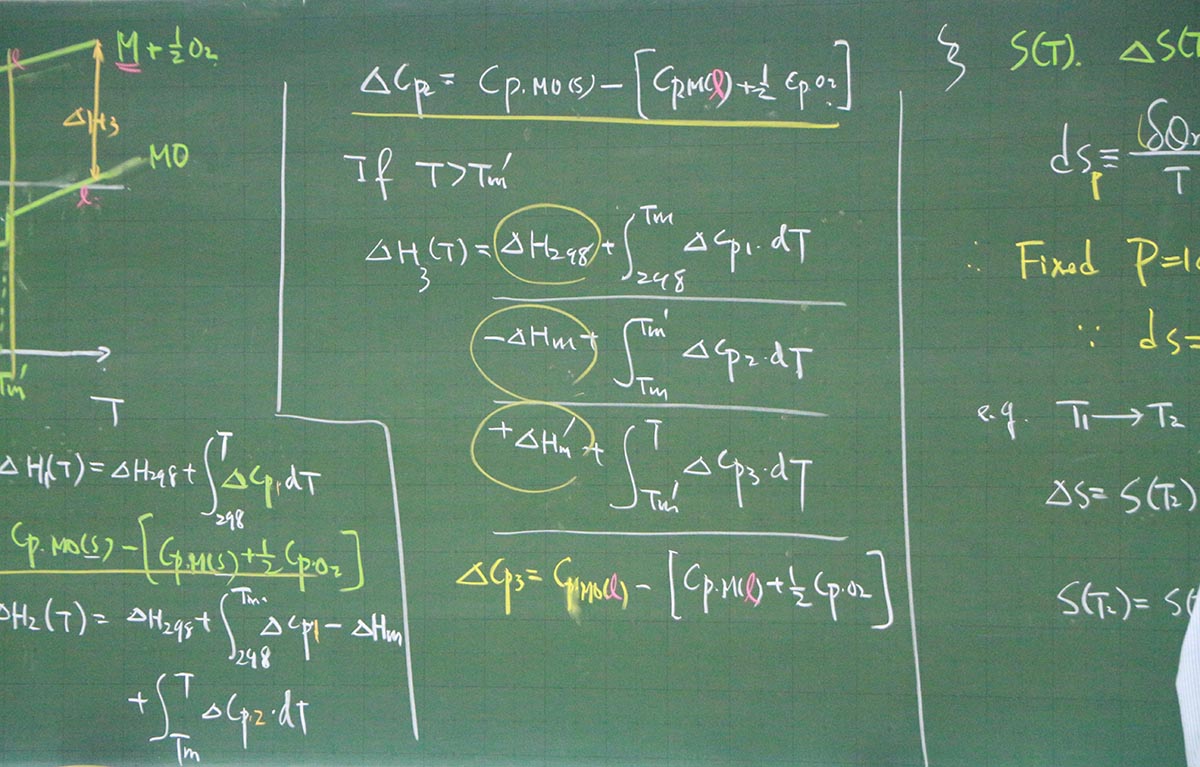 M + ½O₂
l
ΔH₃
MO
l
Tm′
T
ΔH₁(T) = ΔH₂₉₈ + ∫₂₉₈ᵀ ΔCp₁dT
Cp.MO(s) − [Cp.M(s) + ½Cp.O₂]
ΔH₂(T) = ΔH₂₉₈ + ∫₂₉₈^Tm ΔCp₁ − ΔHm
+ ∫_Tm^T ΔCp.₂·dT
ΔCp₂ = Cp.MO(s) − [Cp.M(l) + ½ Cp.O₂]
If T>Tm′
ΔH₃(T) = ΔH₂₉₈ + ∫₂₉₈^Tm ΔCp₁·dT
−ΔHm + ∫_Tm^Tm′ ΔCp₂·dT
+ΔHm′ + ∫_Tm′^T ΔCp₃·dT
ΔCp₃ = Cp.MO(l) − [Cp.M(l) + ½Cp.O₂]
} S(T). ΔS(T
dSp ≡ δQ / T
∴ Fixed P=1
∵ ds=
e.g. T₁ → T₂
ΔS = S(T₂)
S(T₂) = S(